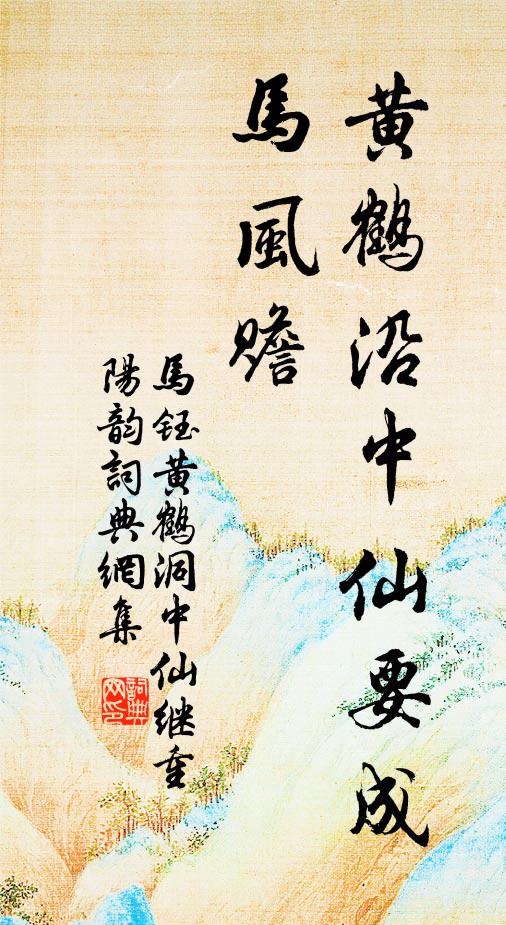 黄鶴沿中仙要成
馬風贍
馬鈺黄鶴洞中仙继重
陽韵詞典網集
詞典網印